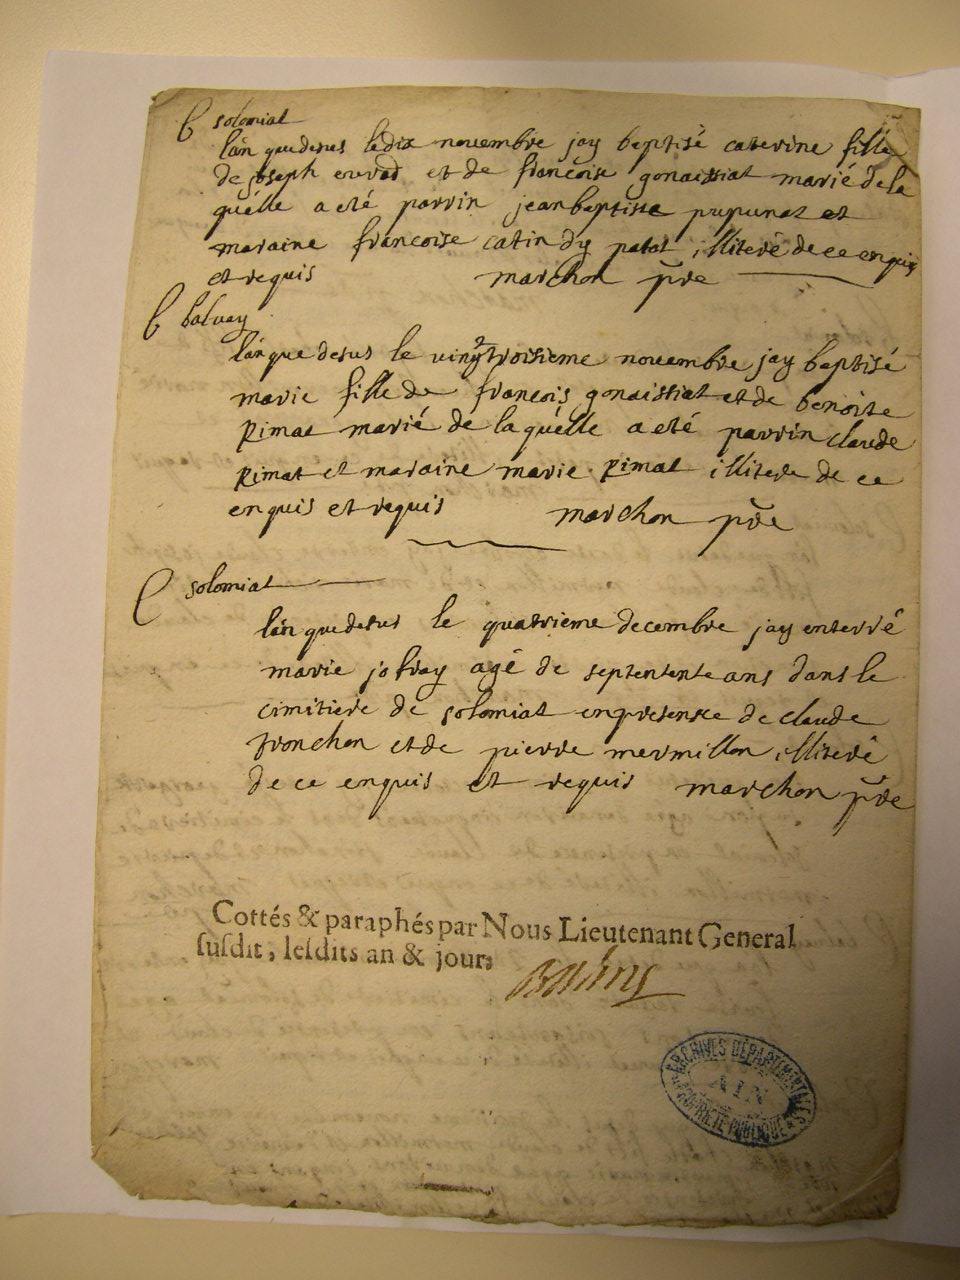 B solomiat
lan que desus le dix novembre jay baptisé caterine fille
de joseph et de francoise gonaissiat marié de la
quélle a eté parrin jean baptiste pupunat et
maraine francoise catin dy patat illiteré de ce enquis
et requis marchon pre
b baluay
lan que desus le vingttroisieme novembre jay baptisé
marie fille de francois gonaissiat et de benoite
pimat marié de la quélle a eté parrin claude
pimat et maraine marie pimat illitere de ce
enquis et requis marchon pre
E solomiat
lan que desus le quatrieme decembre jay enterré
marie agé de septentente ans dans le
cimitiere de solomiat enpresence de claude
tronchon et de pierre mermillon illiteré
de ce enquis et requis marchon pre
Cottés & paraphés par Nous Lieutenant General
susdit, lesdits an & jour,
ARCHIVES DÉPARTEMENTALES
AIN
PROPRIÉTÉ PUBLIQUE